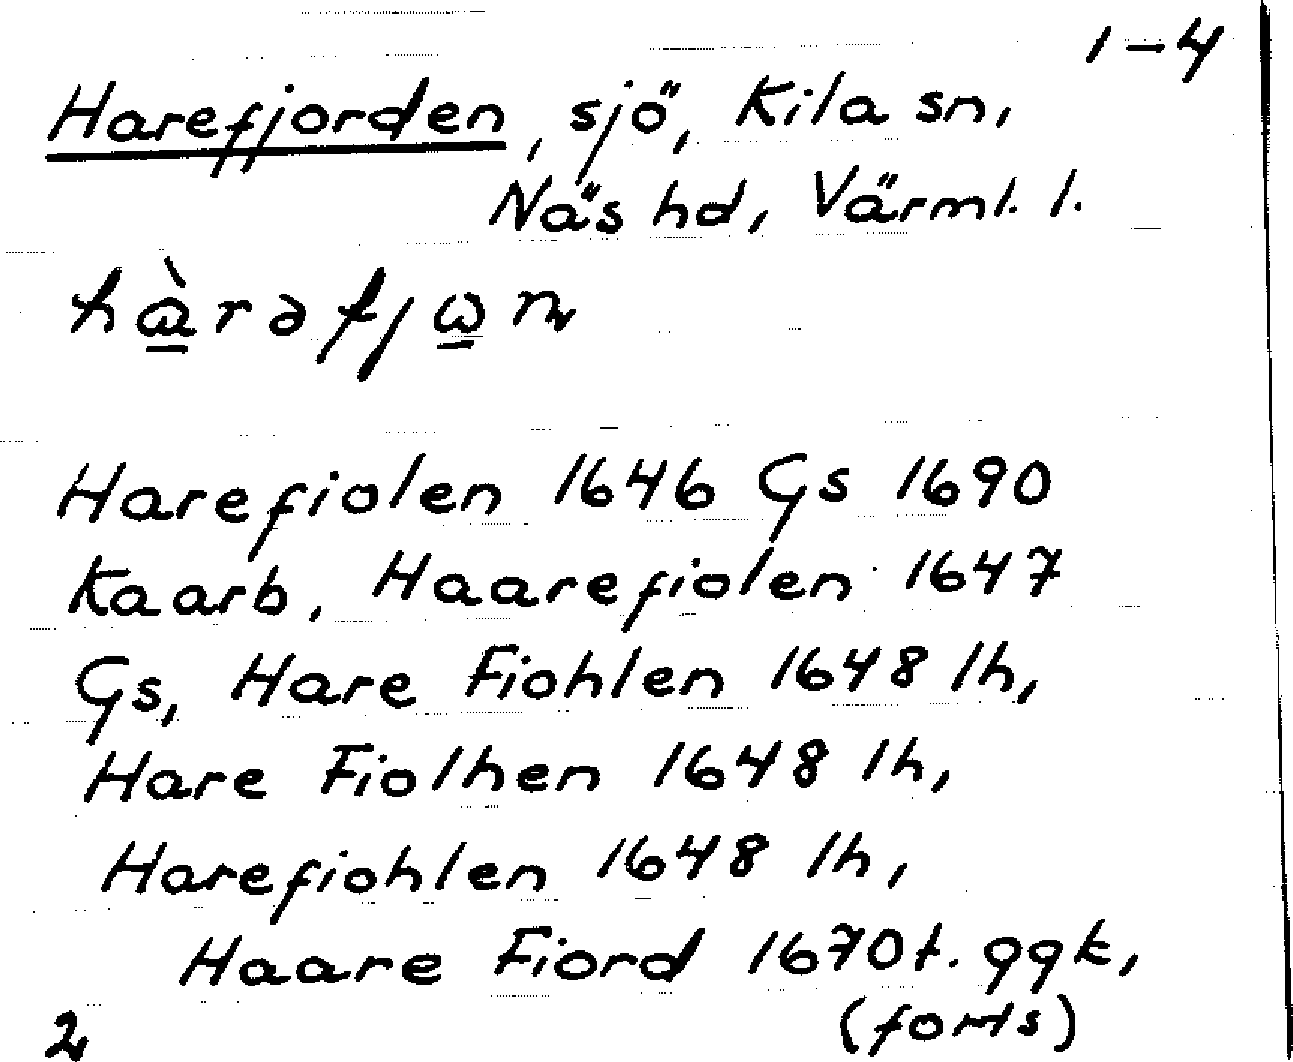 1-4
Harefjorden, sjö, Kila sn,
Näs hd, Värml. l.
hàrəfjωn
Harefiolen 1646 Gs 1690
Kaarb, Haarefiolen 1647
Gs, Hare Fiohlen 1648 lh,
Hare Fiolhen 1648 lh,
Harefiohlen 1648 lh,
Haare Fiord 1670t. ggk,
(forts)
2